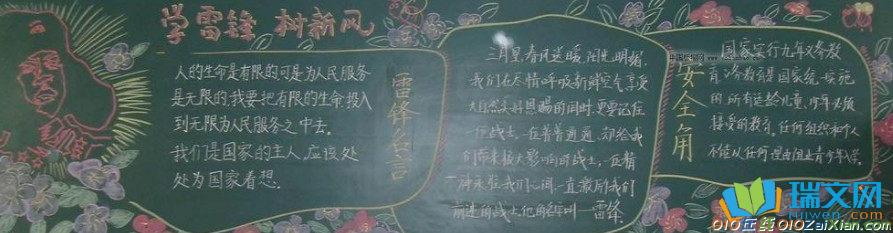 学雷锋 树新风
人的生命是有限的可是为人民服务
是无限的,我要把有限的生命投入
到无限为人民服务之中去。
我们是国家的主人,应该处
处为国家着想。
雷锋名言
三月里,春风送暖,阳光明媚,
我们在尽情呼吸新鲜空气享受
大自然美好恩赐的同时,更要记住
一位战士,在普普通通,却给我
们带来极大影响的战士,一种精
神永驻我们心间,一直激励我们
前进的战士他的名字叫—雷锋
安全角
国家实行九年义务教
育
义务教育是国家统一实施
的,所有适龄儿童,少年必须
接受的教育,任何组织和个人
不能以任何理由阻止青少年入学。
瑞文网
ruiwen.com
010在线 010ZaiXian.com